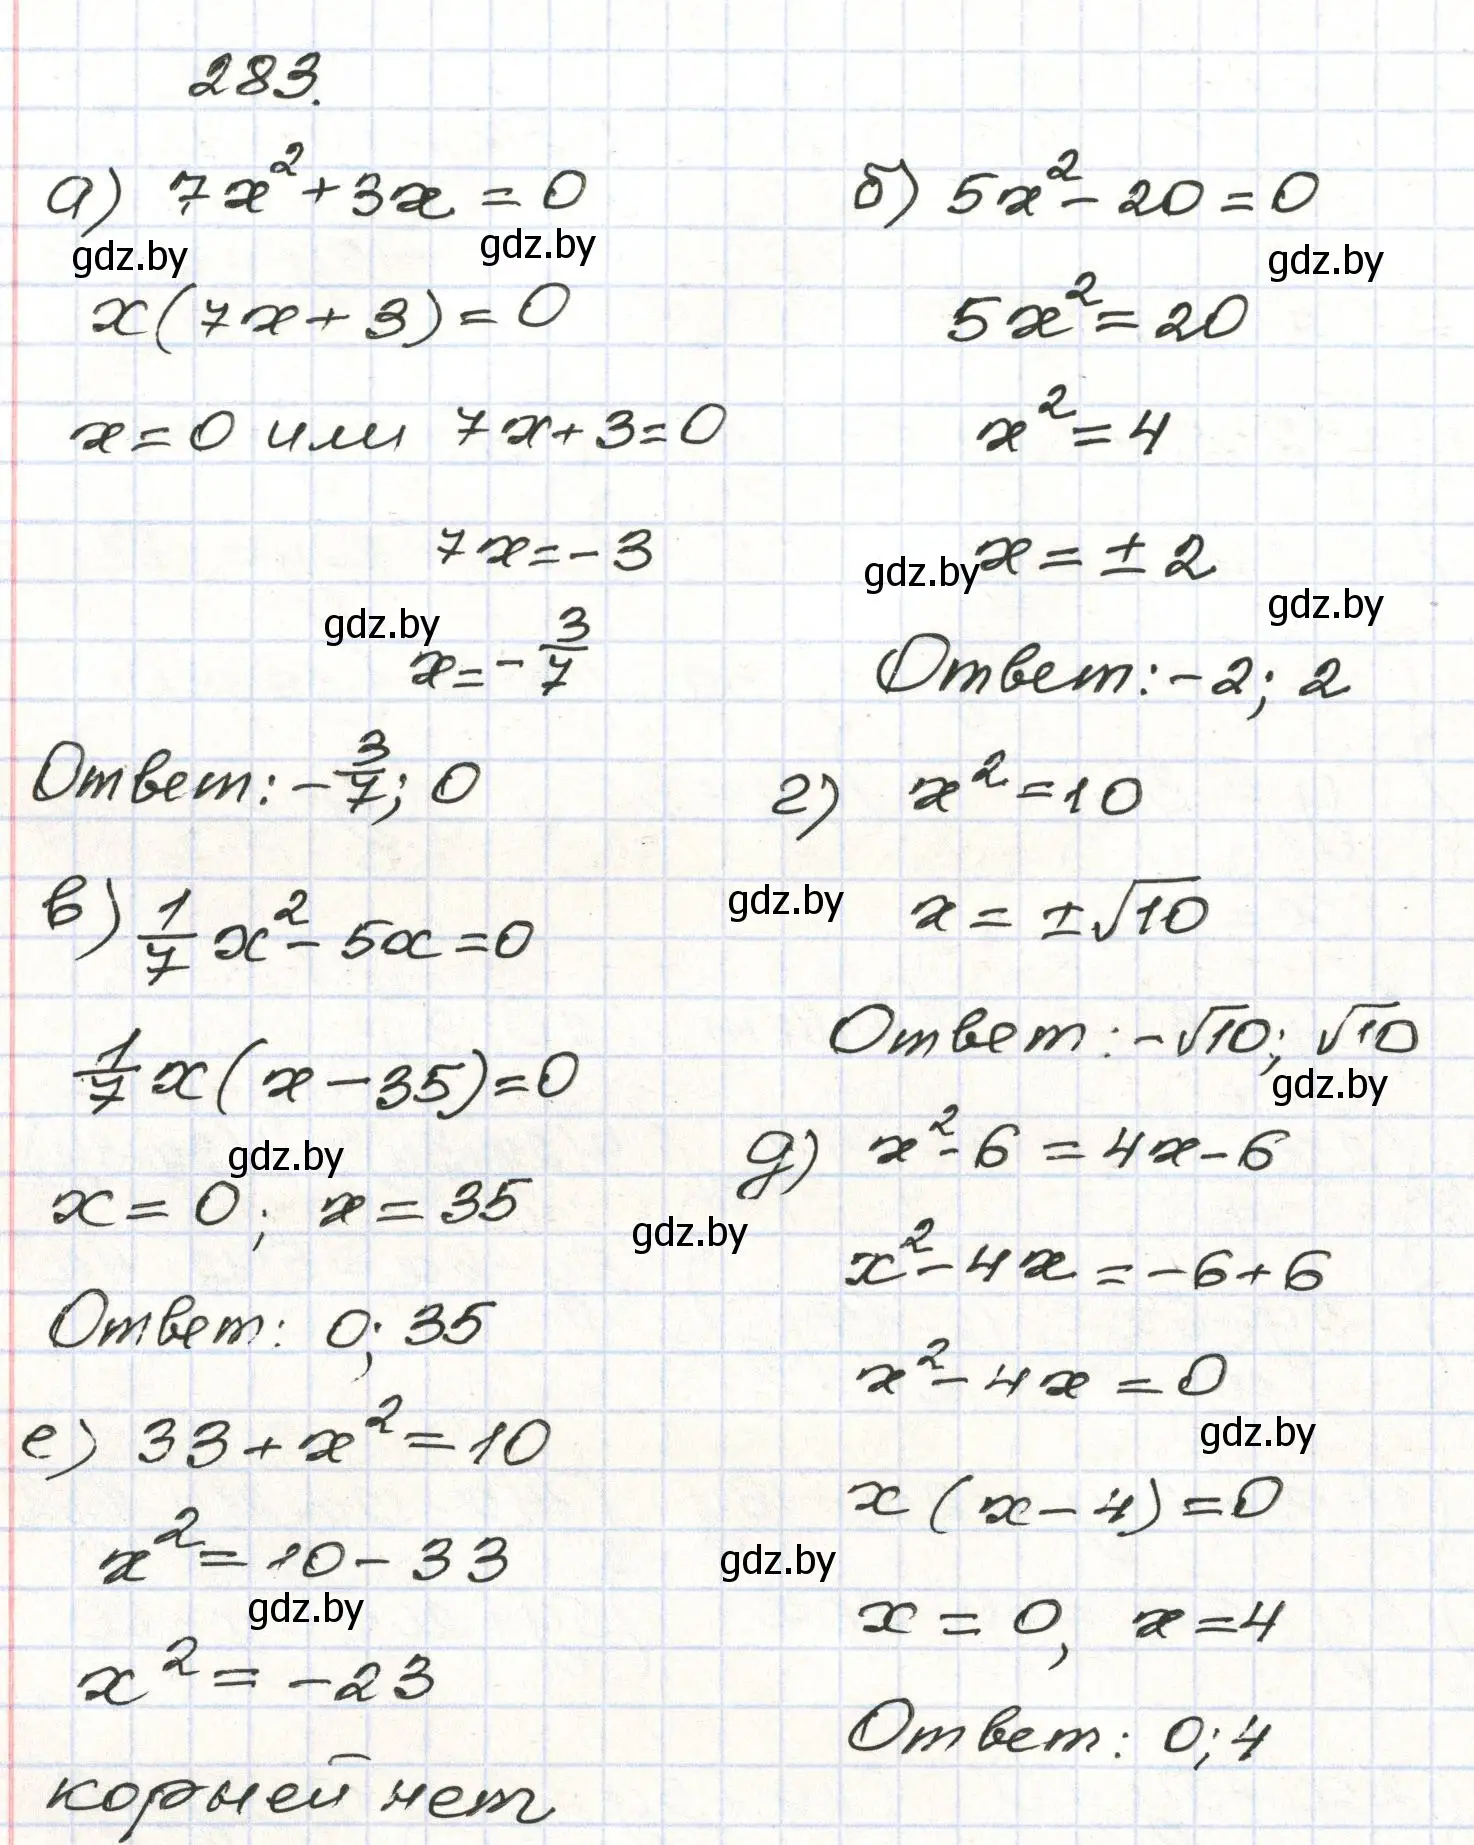 283.
а) 7x² + 3x = 0
gdz.by
gdz.by
x(7x + 3) = 0
x = 0 или 7x + 3 = 0
7x = -3
gdz.by
x = -3/7
Ответ: -3/7; 0
б) 5x² - 20 = 0
gdz.by
5x² = 20
x² = 4
gdz.by
x = ± 2
gdz.by
Ответ: -2; 2
в) 1/7 x² - 5x = 0
1/7 x(x - 35) = 0
gdz.by
x = 0; x = 35
Ответ: 0; 35
г) x² = 10
gdz.by
x = ±√10
Ответ: -√10; √10
gdz.by
д) x² - 6 = 4x - 6
gdz.by
x² - 4x = -6 + 6
x² - 4x = 0
gdz.by
x(x - 4) = 0
gdz.by
x = 0, x = 4
Ответ: 0; 4
е) 33 + x² = 10
x² = 10 - 33
gdz.by
x² = -23
корней нет